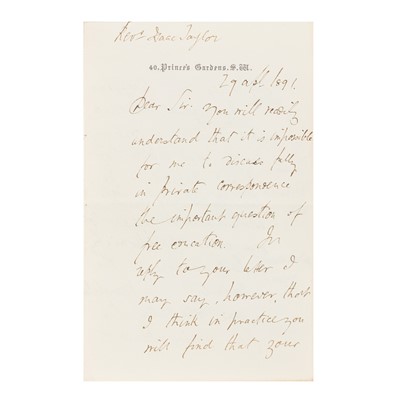 Revd Isaac Taylor
40, Prince's Gardens. S.W.
29 apl. 1891.
Dear Sir. You will readily
understand that it is impossible
for me to discuss fully
in private correspondence
the important question of
free education. In
reply to your letter I
may say, however, that
I think in practice you
will find that your